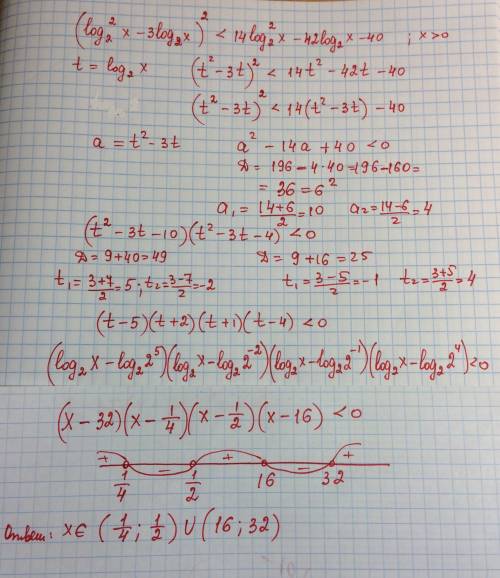 (log₂²x − 3log₂x)² < 14log₂²x − 42log₂x − 40 ; x>0
t = log₂x (t² − 3t)² < 14t² − 42t − 40
(t² − 3t)² < 14(t² − 3t) − 40
a = t² − 3t a² − 14a + 40 < 0
D = 196 − 4·40 = 196 − 160 =
= 36 = 6²
a₁ = (14+6)/2 = 10 a₂ = (14−6)/2 = 4
(t² − 3t − 10)(t² − 3t − 4) < 0
D = 9 + 40 = 49 D = 9 + 16 = 25
t₁ = (3+7)/2 = 5 ; t₂ = (3−7)/2 = −2 t₁ = (3−5)/2 = −1 t₂ = (3+5)/2 = 4
(t − 5)(t + 2)(t + 1)(t − 4) < 0
(log₂x − log₂2⁵)(log₂x − log₂2⁻²)(log₂x − log₂2⁻¹)(log₂x − log₂2⁴) < 0
(x − 32)(x − 1/4)(x − 1/2)(x − 16) < 0
+ − + − +
1/4 1/2 16 32
Ответ: x∈ (1/4; 1/2) ∪ (16; 32)